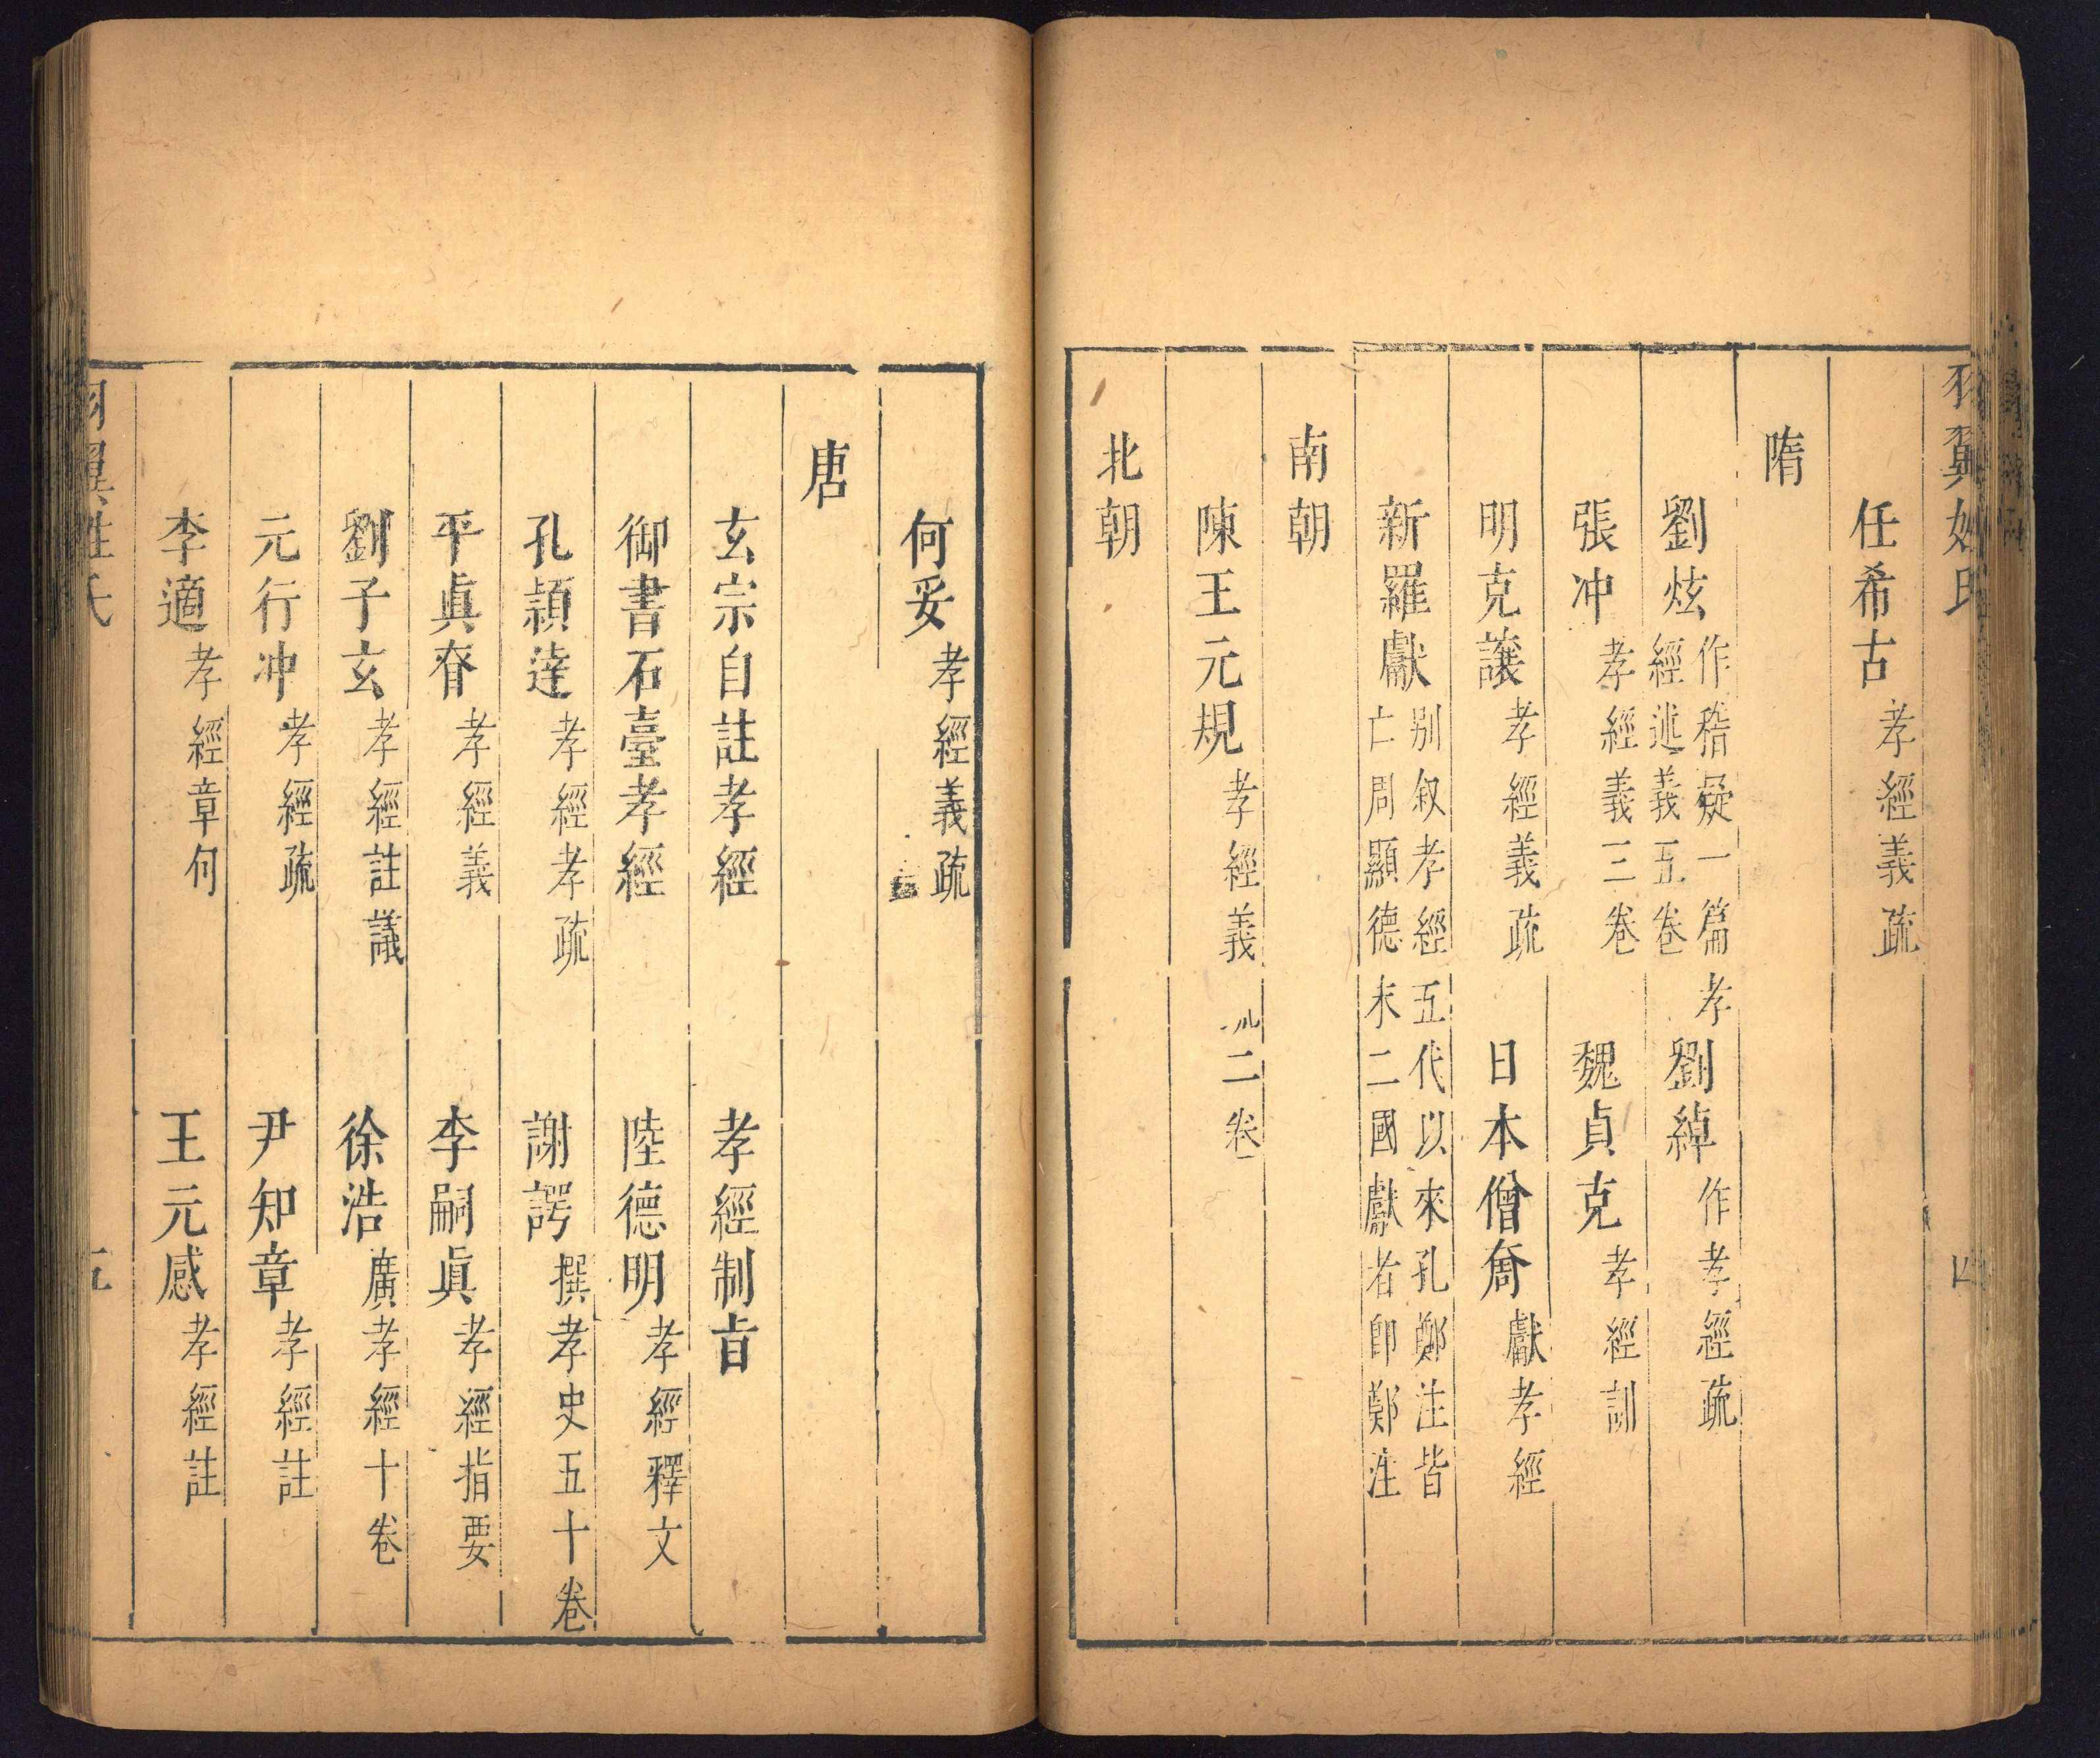 羽翼姓氏 四
任希古 孝經義疏
隋
劉炫 作稽疑一篇孝經述義五卷 劉綽 作孝經疏
張冲 孝經義三卷 魏貞克 孝經訓
明克讓 孝經義疏 日本僧奝 獻孝經
新羅獻 别叙孝經五代以來孔鄭注皆亡周顯德末二國獻者卽鄭注
南朝
陳王元規 孝經義 二卷
北朝
何妥 孝經義疏
唐
玄宗自註孝經 孝經制旨
御書石臺孝經 陸德明 孝經釋文
孔頴達 孝經孝疏 謝諤 撰孝史五十卷
平眞眘 孝經義 李嗣眞 孝經指要
劉子玄 孝經註議 徐浩 廣孝經十卷
元行冲 孝經疏 尹知章 孝經註
李適 孝經章句 王元感 孝經註
羽翼姓氏 五